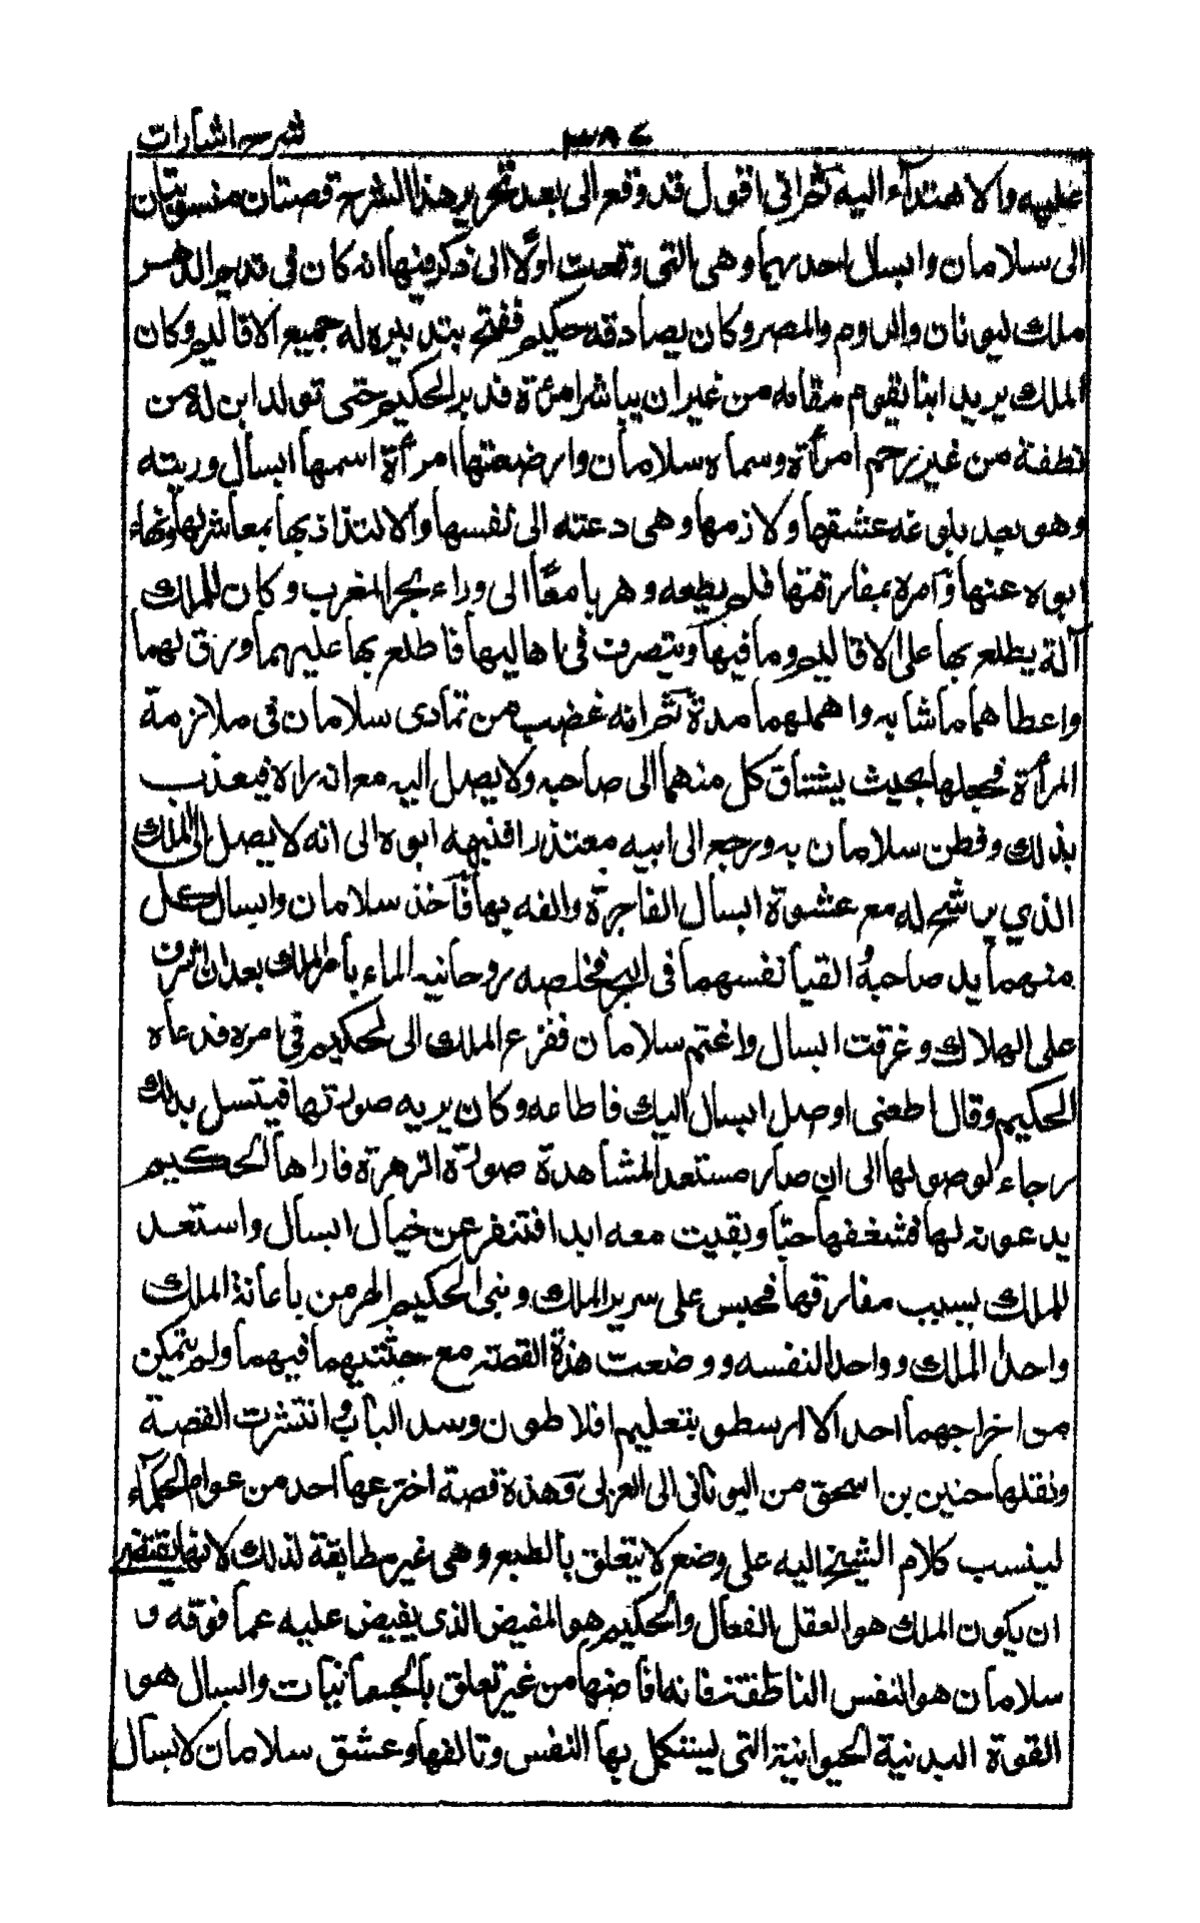 شرح اشارات
٣٨٤
عليه والاهتداء اليه ثم انى اقول قد وقع الى بعد تحرير هذا الشرح قصتان منسوبتان
الى سلامان وابسال احديهما وهى التى وقعت اولًا الى ذكر فيها انه كان فى قديم الدهر
ملك ليونان والروم والمصر وكان يصادقه حكيم ففتح بتدبيره له جميع الاقاليم وكان
الملك يريد ابنا يقوم مقامه من غير ان يباشر امرءة فدبر الحكيم حتى تولد ابن له من
نطفة من غير رحم امرأة وسماه سلامان وارضعتها امرأة اسمها ابسال وربته
وهو بعد بلوغه عشقها ولازمها وهى دعته الى نفسها والالتذاذ بها بمعاشرتها ونهاه
ابوه عنها وآمره بمفارقتها فلم يطعه وهربا معًا الى وراء بحر المغرب وكان للملك
آلة يطلع بها على الاقاليم وما فيها ويتصرف فى اهاليها فاطلع بها عليهما ورق لهما
واعطاهما ما شابه واهملهما مدة ثم انه غضب من تمادى سلامان فى ملازمة
المرأة فجعلها بحيث يشتاق كل منهما الى صاحبه ولا يصل اليه مع انه يراه فيعذب
بذلك وفطن سلامان به ورجع الى ابيه معتذرا فنبهه ابوه الى انه لا يصل الى الملك
الذي يرشح له مع عشقة ابسال الفاجرة والفه بها فآخذ سلامان وابسال كل
منهما يد صاحبهُ القيا نفسهما فى البحر فخلصه روحانيه الماء بأمر الملك بعد ان اشرف
على الهلاك وغرقت ابسال واغتم سلامان ففزع الملك الى لحكيم فى امره فدعاه
الحكيم وقال اطعنى اوصل ابسال اليك فاطاعه وكان يريه صورتها فيتسل بذلك
رجاء لوصولها الى ان صار مستعد المشاهدة صورة الزهرة فاراها لحكيم
يدعوته لها فشغفها حبًا وبقيت معه ابدا فتنفر عن خيال ابسال واستعد
للملك بسبب مفارقها فجبس على سرير الملك وبنى الحكيم الهرمن باعانة الملك
واحدا الملك وواحدا لنفسه ووضعت هذة القصة مع جثتيهما فيهما ولم يتمكن
من اخراجهما احد الا ارسطو بتعليم افلاطون وسد الباب وانتشرت القصة
ونقلها حنين بن اسحق من اليونانى الى العربى وهذة قصة اخترعها احد من عوام الحكمآء
لينسب كلام الشيخ اليه على وضع لا يتعلق بالطبع وهى غير مطابقة لذلك لانها يقتضى
ان يكون الملك هو العقل الفعال والحكيم هو المفيض الذى يفيض عليه عما فوقه و
سلامان هو النفس الناطقة فانه افاضها من غير تعلق بالجسمانيات وابسال هو
القوة البدنية الحيوانية التى ليستكمل بها النفس وتالفها وعشق سلامان لابسال